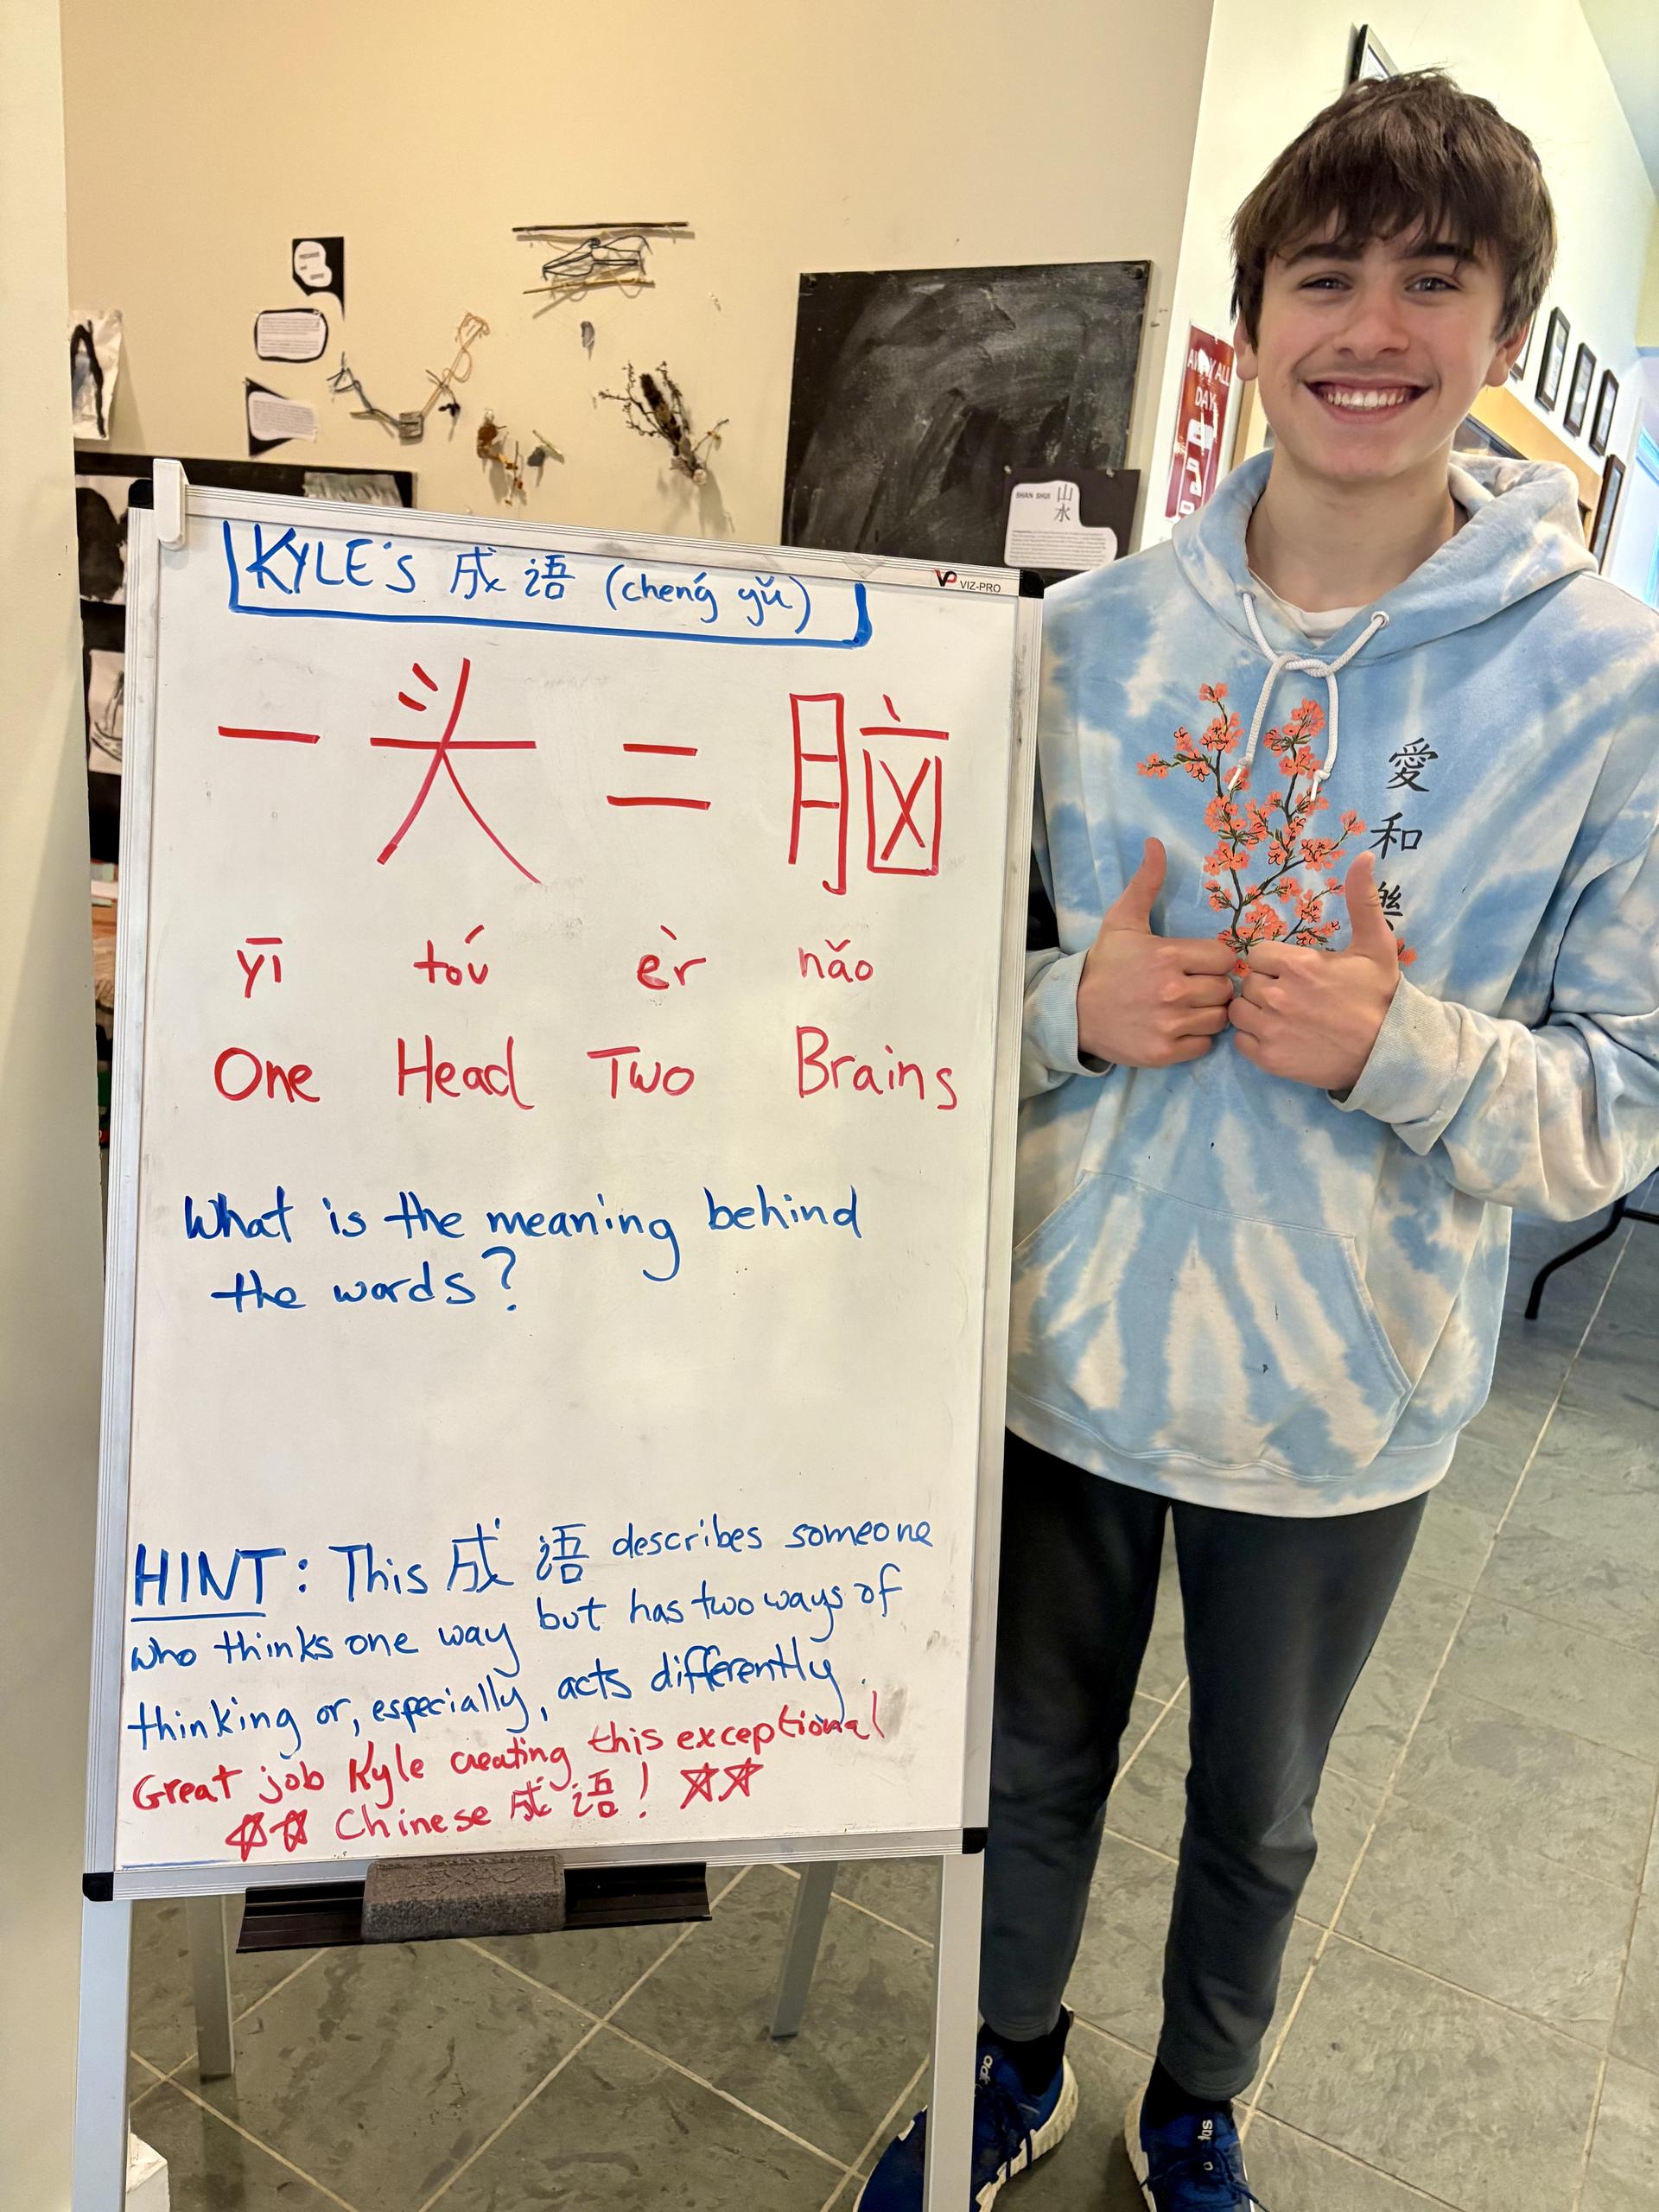 KYLE'S 成语 (chéng yǔ)
VIZ-PRO
一头二脑
yī tóu èr nǎo
One Head Two Brains
What is the meaning behind
the words?
HINT: This 成语 describes someone
who thinks one way but has two ways of
thinking or, especially, acts differently.
Great job Kyle creating this exceptional
Chinese 成语!
SHAN SHUI 山水
ALL
DAY
愛
和
adidas